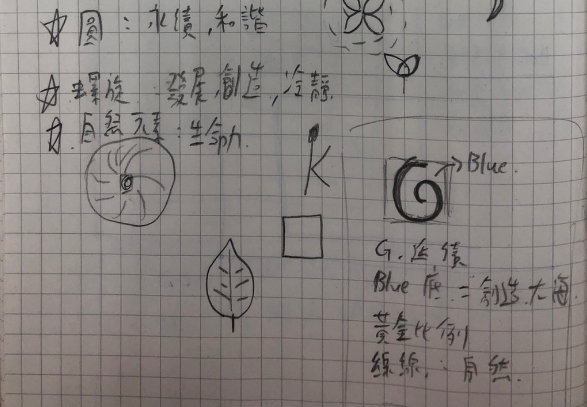 圓：永續，和諧
螺旋：發展，創造，冷靜
自然元素：生命力.
K
G → Blue.
G. 延續
Blue 底 = 創造大海
黃金比例
綠線：自然.